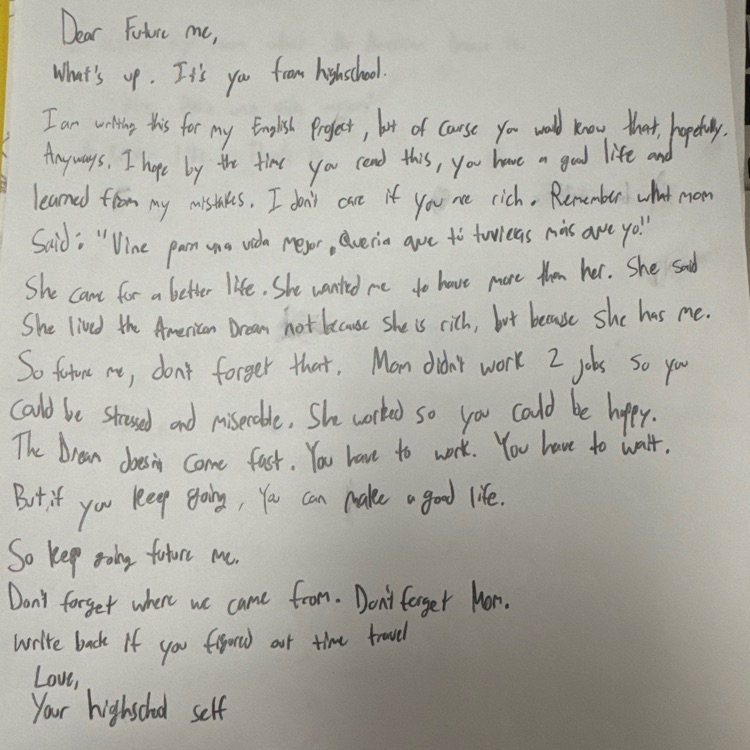 Dear Future me,
What's up. It's you from highschool.
I am writing this for my English Project, but of course you would know that, hopefully.
Anyways. I hope by the time you read this, you have a good life and
learned from my mistakes. I don't care if you are rich. Remember what mom
Said: "Vine para una vida mejor, Queria que tú tuvieras más que yo!"
She came for a better life. She wanted me to have more than her. She said
She lived the American Dream not because she is rich, but because she has me.
So future me, don't forget that. Mom didn't work 2 jobs so you
Could be stressed and miserable. She worked so you could be happy.
The Dream doesn't come fast. You have to work. You have to wait.
But, if you keep going, You can make a good life.
So keep going future me.
Don't forget where we came from. Don't forget Mom.
Write back if you figured out time travel
Love,
Your highschool self